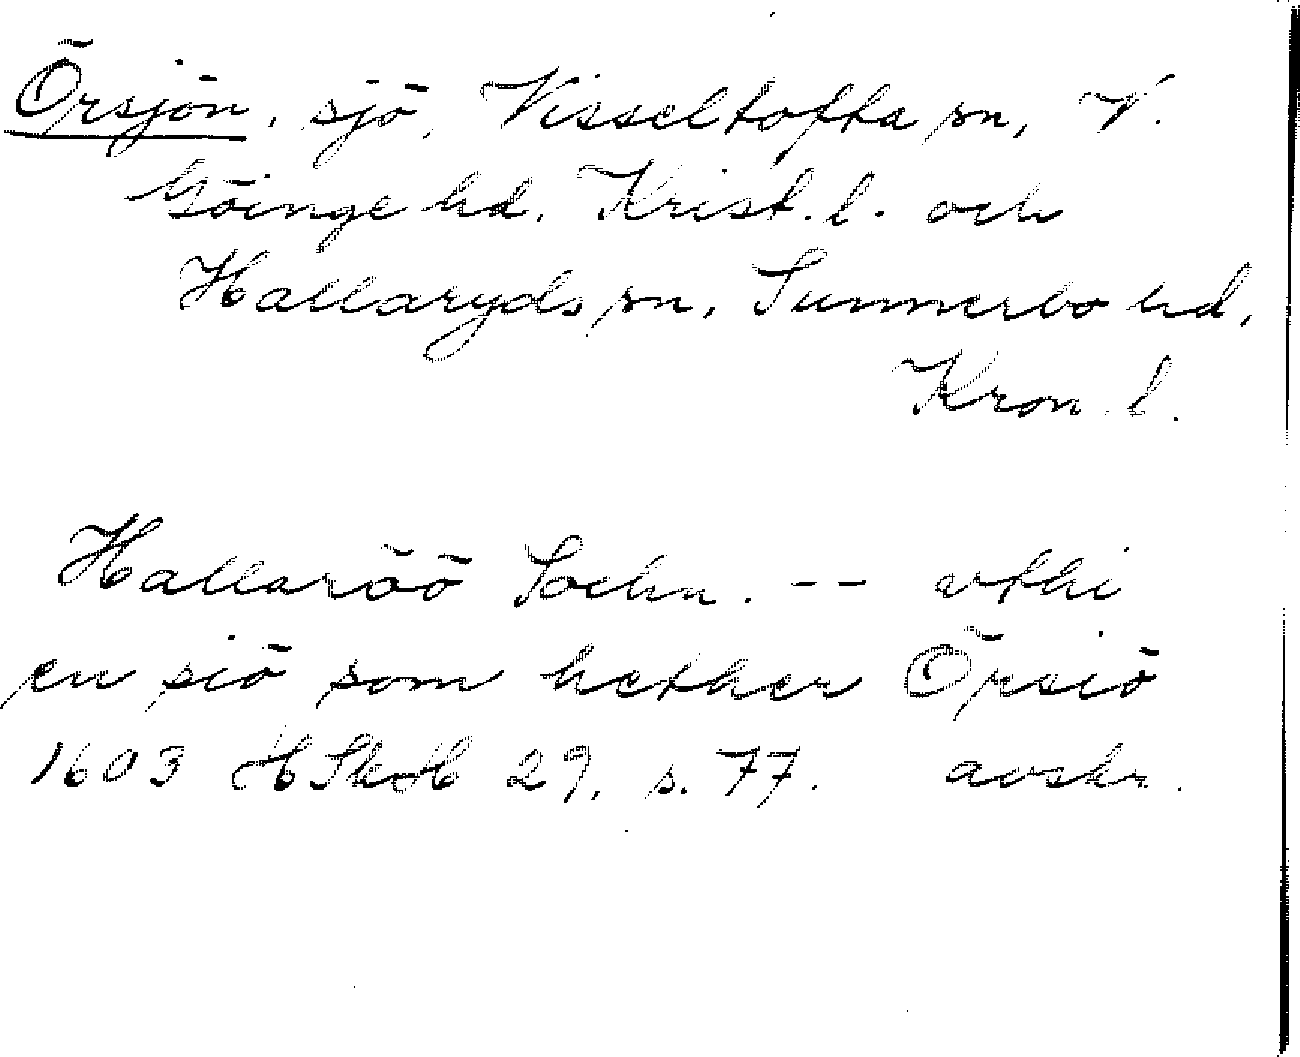 Örsjön, sjö, Visseltofta sn, V.
Göinge hd. Krist. l. och
Hallaryds sn, Sunnerbo hd,
Kron. l.
Hallaröö Sochn. -- vthi
en siö som hether Örsiö
1603 HSkH 29, s. 77. avskr.